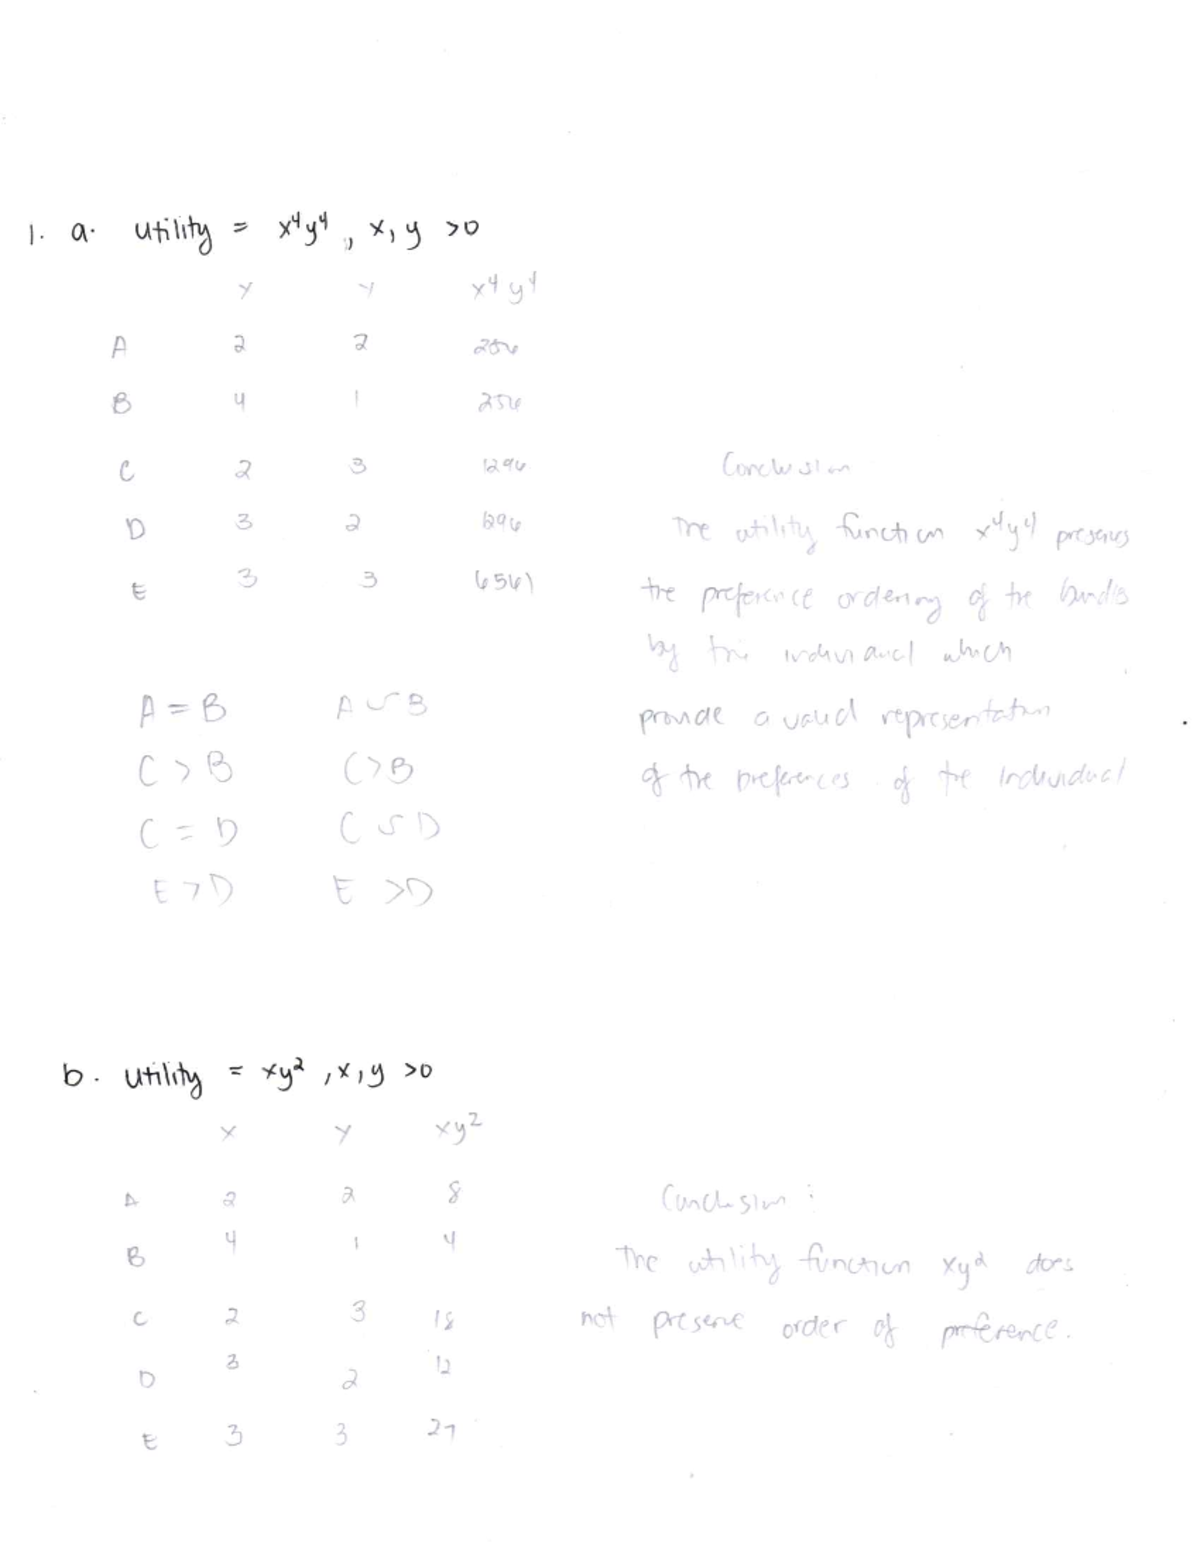 1. a. utility = x⁴y⁴, x, y >0
Y Y x⁴y⁴
A 2 2 256
B 4 1 256
C 2 3 1296
D 3 2 1296
E 3 3 6561
Conclusion
The utility function x⁴y⁴ preserves
the preference ordering of the bundls
by the individual which
provide a valid representation
of the preferences of the individual
A = B A ∽ B
C > B C > B
C = D C ∽ D
E > D E > D
b. utility = xy², x, y >0
X Y xy²
A 2 2 8
B 4 1 4
C 2 3 18
D 3 2 12
E 3 3 27
Conclusion :
The utility function xy² does
not preserve order of preference.